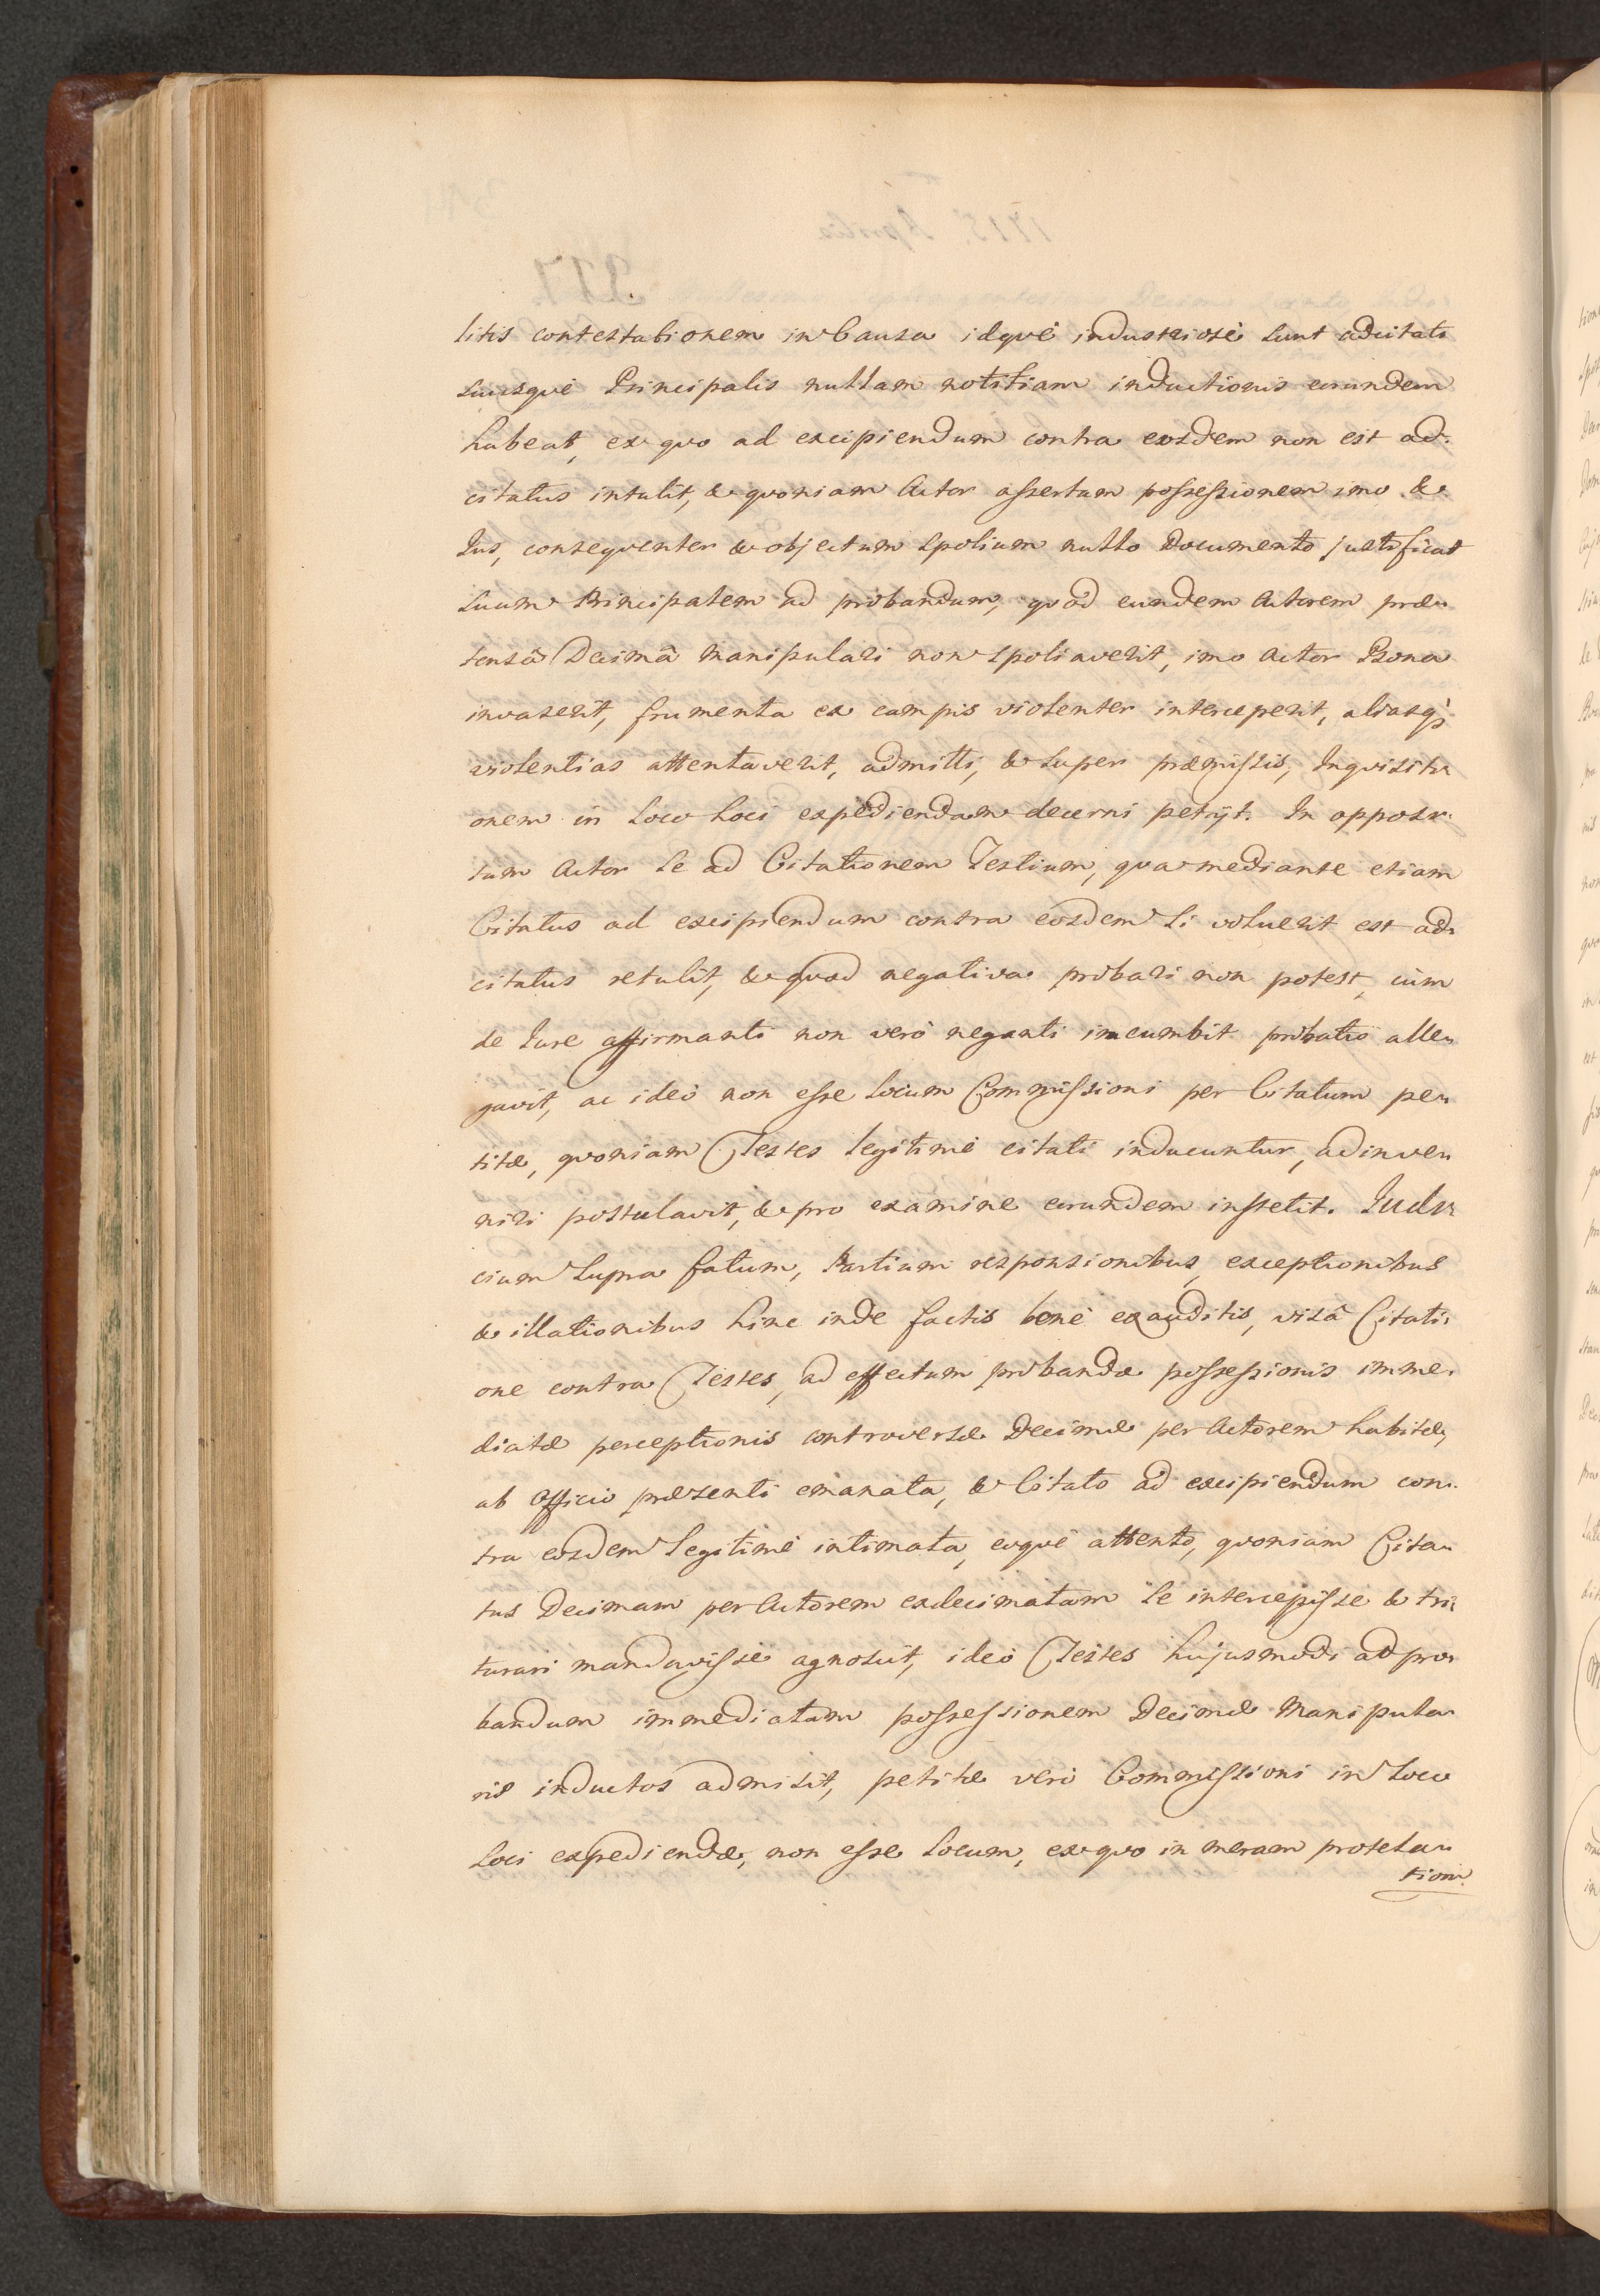 litis contestationem in Causa idque industriose sunt adcitati
suusque Principalis nullam notitiam inductionis eorundem
habeat, ex quo ad excipiendum contra eosdem non est ad-
citatus intulit, & quoniam Actor assertam possessionem imo &
Jus, consequenter & objectum spolium nullo Documento justificat
suum Principalem ad probandum, quod eundem Actorem præ-
tensâ Decimâ Manipulari non spoliaverit, imo Actor Bona
invaserit, frumenta ex campis violenter interceperit, aliasq;
violentias attentaverit, admitti, & super præmissis, Inquisiti-
onem in Loco Loci expediendam decerni petijt. In opposi-
tum Actor se ad Citationem Testium, qua mediante etiam
Citatus ad excipiendum contra eosdem si voluerit est ad-
citatus retulit, & quod negativa probari non potest, cùm
de Jure affirmanti non verò neganti incumbit probatio alle-
gavit, ac ideò non esse locum Commissioni per Citatum pe-
titæ, quoniam Testes legitimè citati inducuntur, adinve-
niri postulavit, & pro examine eorundem institit. Judi-
cium supra fatum, Partium responsionibus, exceptionibus
& illationibus hinc inde factis benè exauditis, visâ Citati-
one contra Testes, ad effectum probandæ possessionis imme-
diatæ perceptionis controversæ Decimæ per Actorem habitæ,
ab Officio præsenti emanata, & Citato ad excipiendum con-
tra eosdem legitimè intimata, eoquè attento, quoniam Cita-
tus Decimam per Actorem exdecimatam se intercepisse & tri-
turari mandavisse agnoscit, ideò Testes hujusmodi ad pro-
bandum immediatam possessionem Decimæ Manipula-
ris inductos admisit, petitæ verò Commissioni in Loco
Loci expediendæ, non esse locum, ex quo in meram protela-
tionem